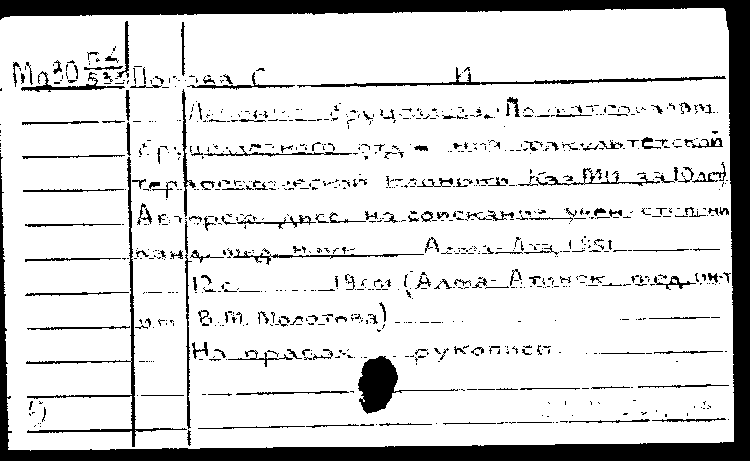 Мд30 П2/535 Попова С И
Лечение бруцеллеза. По материалам
бруцеллезного отд-ния факультетской
терапевтической клиники КазМИ за 10 лет)
Автореф. дисс. на соискание учен. степени
канд. мед. наук Алма-Ата, 1951
12 с. 19 см (Алма-Атинск. мед. ин-т
им В.М. Молотова)
На правах рукописи.